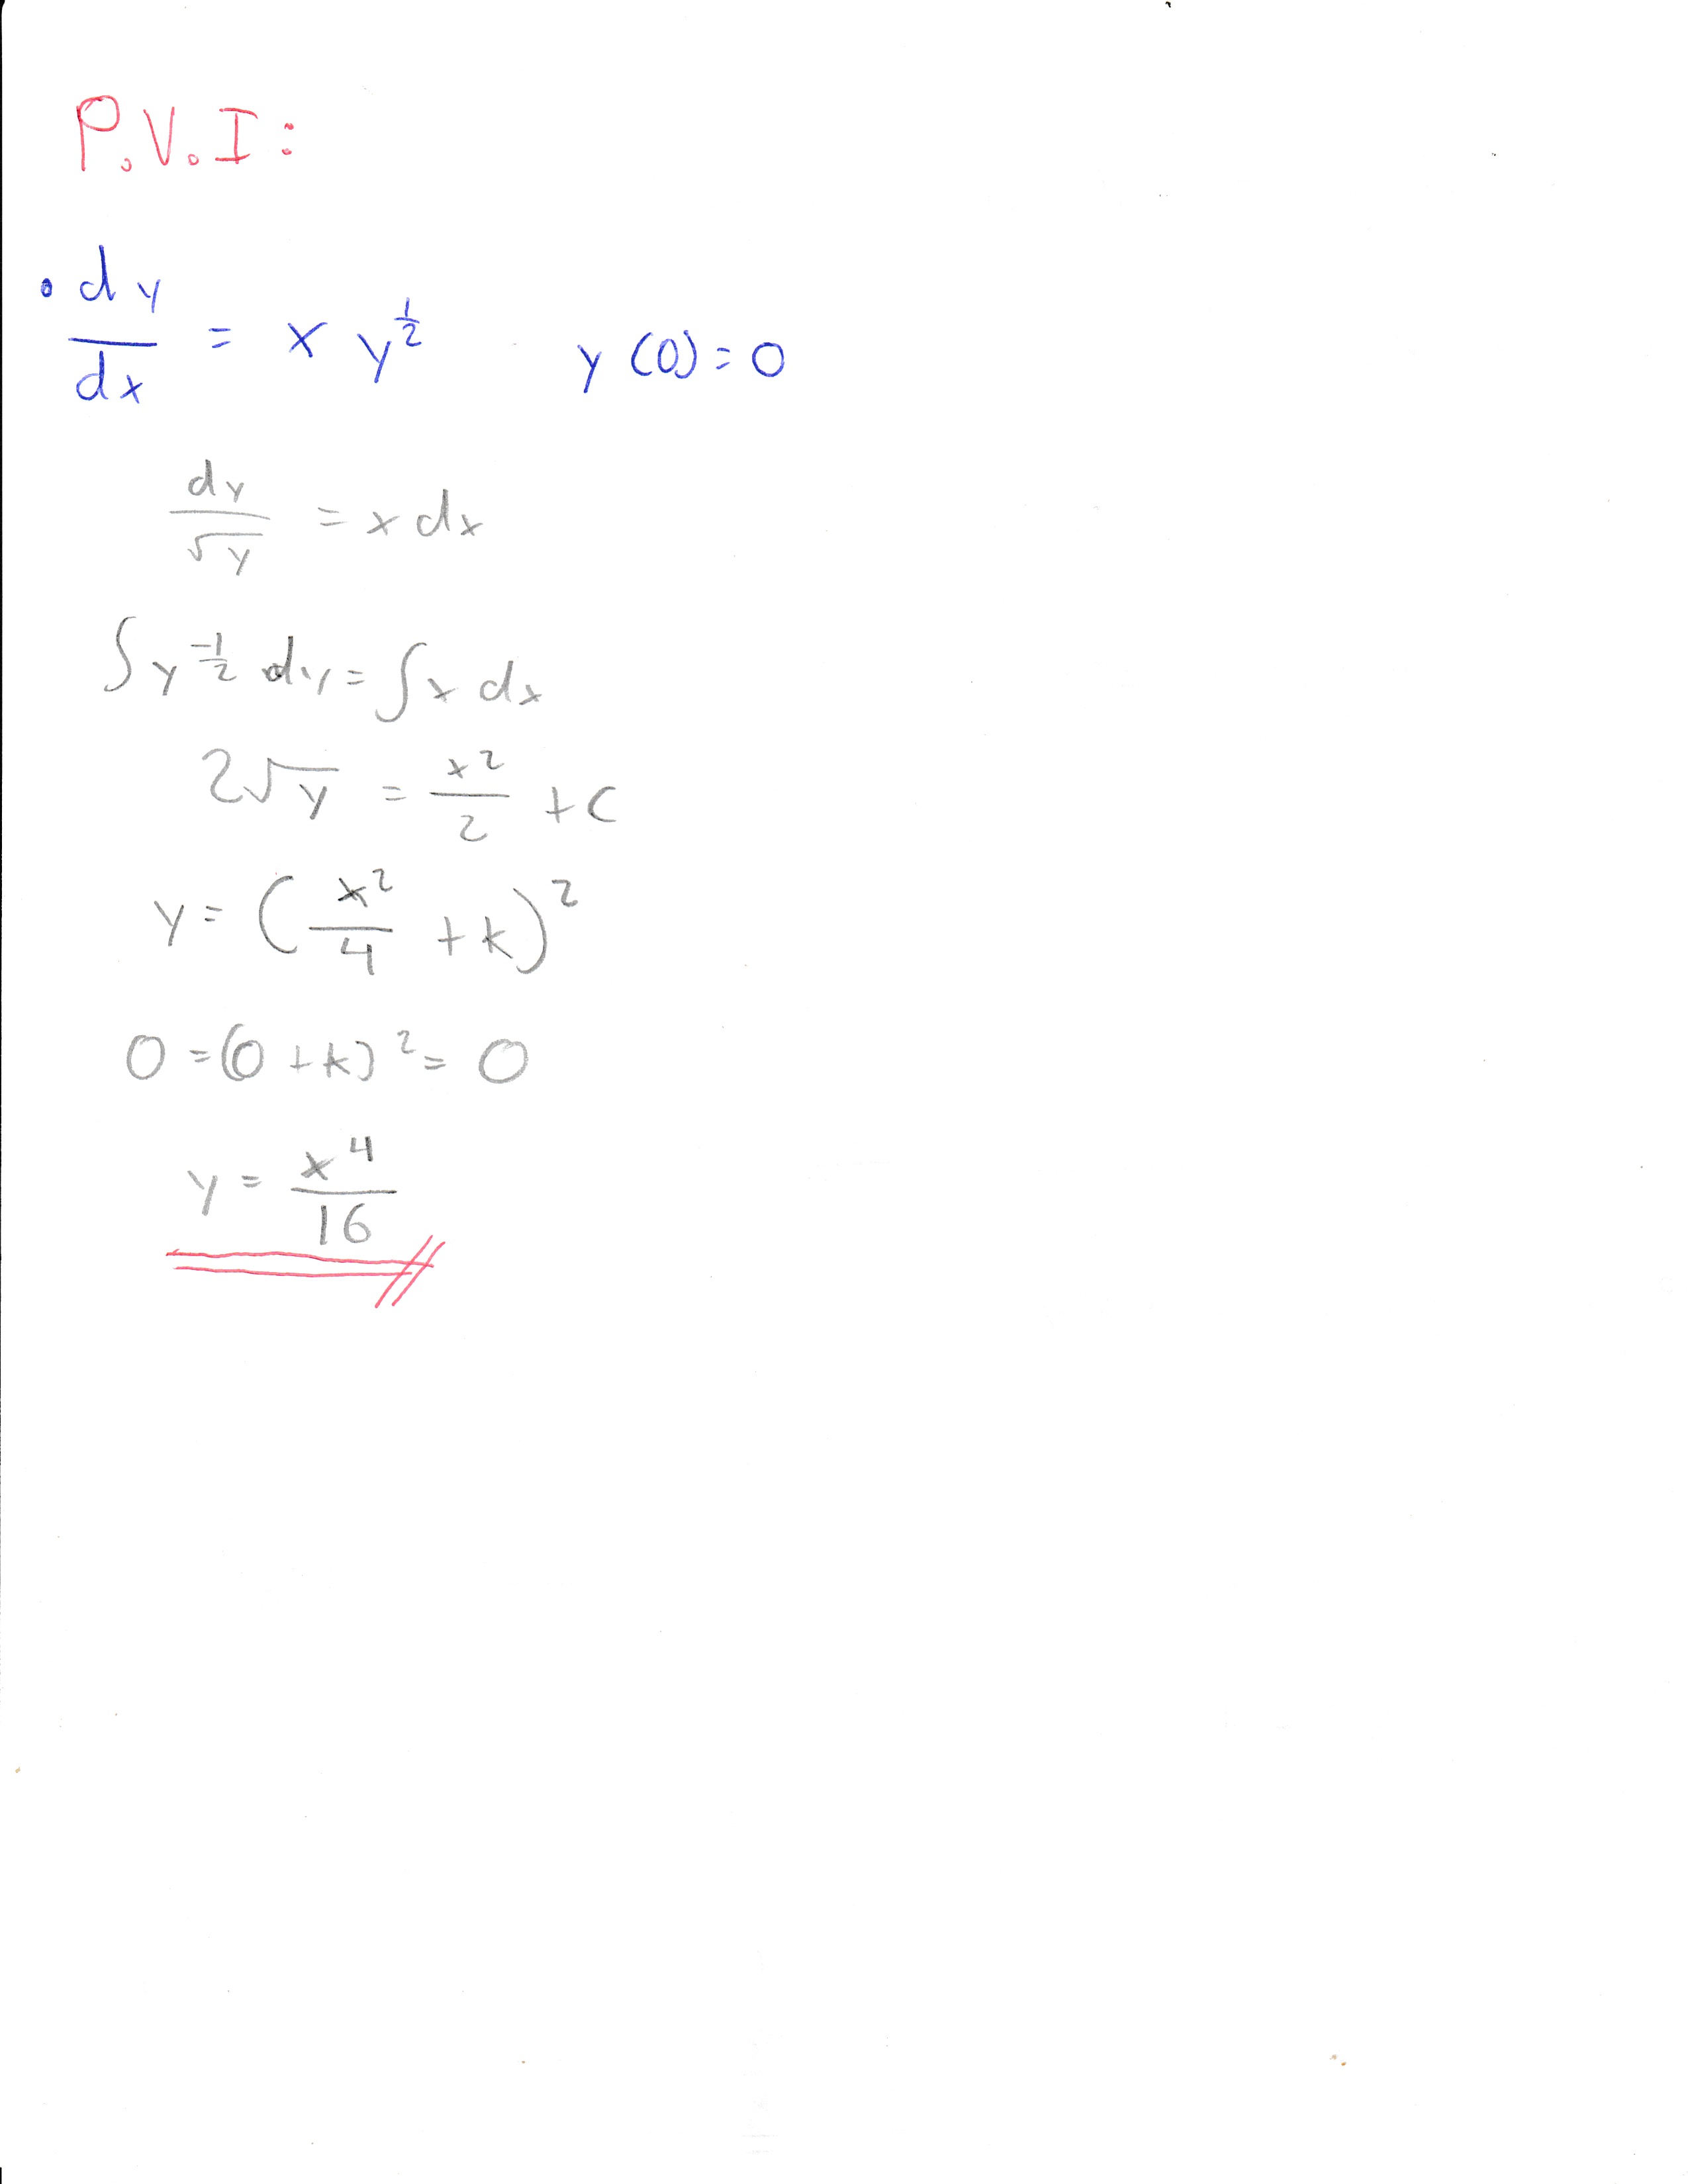 P.V.I:
• dy/dx = x y^(1/2) y(0)=0
dy/√y = x dx
∫y^(-1/2) dy = ∫x dx
2√y = x²/2 + C
y = (x²/4 + k)²
0 = (0 + k)² = 0
y = x⁴/16